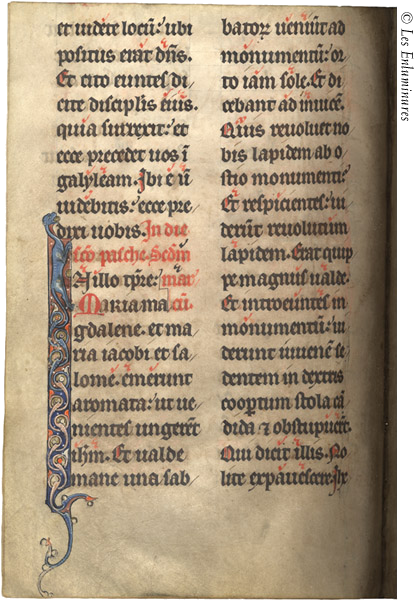 et videte locū: ubi
positus erat dn̄s.
Et cito euntes di
cite discipl̄is eius.
quia surrexit: et
ecce precedet vos ī
galyleam. Ibi eū
videbitis: ecce pre
dixi vobis. In die
scō pasche. Scdm̄
In illo tp̄re: mar
Maria ma cū.
gdalene. et ma
ria iacobi et sa
lome. emerunt
aromata: ut ve
nientes ungerēt
ih̄m. Et valde
mane una sab
batoꝝ veniūt ad
monumentū: or
to iam sole. Et di
cebant ad invicē.
Quis revoluet no
bis lapidem ab o
stio monumenti?
Et respicientes: vi
derūt revolutum
lapidem. Erat quip
pe magnus valde.
Et introeuntes in
monumentū: vi
derunt iuvenē se
dentem in dextris
coopertum stola cā
dida ⁊ obstupuerūt.
Qui dicit illis. No
lite expavescere. Ih̄
© Les Enluminures